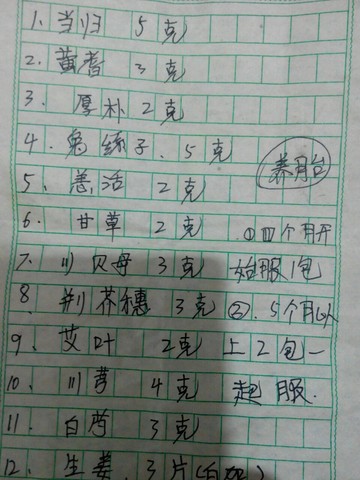 1、当归 5克
2、黄耆 3克
3、厚朴 2克
4、兔絲子、5克
养月台
5、羌活 2克
6、甘草 2克
①四个月开
7、川贝母 3克
始服1包
8、荆芥穗 3克
②、5个月以
9、艾叶 2克
上2包一
10、川芎 4克
起服.
11、白芍 3克
12、生姜 3片(白